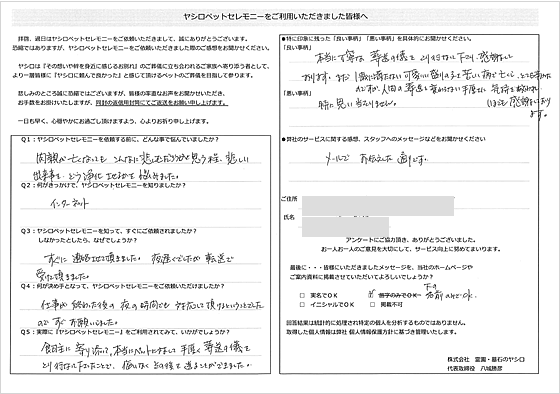 ヤシロペットセレモニーをご利用いただきました皆様へ
拝啓、過日はヤシロペットセレモニーをご依頼いただきまして、誠にありがとうございます。
恐縮ではありますが、ヤシロペットセレモニーをご依頼いただきました際のご感想をお聞かせください。
ヤシロは「その想いや絆を身近に感じるお別れ」のご葬儀に立ち会われるご家族へ寄り添う者として、
より一層皆様に「ヤシロに頼んで良かった」と感じて頂けるペットのご葬儀を目指して参ります。
悲しみのところ誠に恐縮ではございますが、皆様の率直なお声をお聞かせいただき
お手数をお掛けいたしますが、同封の返信用封筒にてご返送をお願い申し上げます。
一日も早く、心穏やかにお過ごし頂けますよう、心よりお祈り申し上げます。
Q1：ヤシロペットセレモニーを依頼する前に、どんな事で悩んでいましたか？
両親が亡くなっても こんなに悲しむだろうかと思う程、悲しい
出来事を
Q2：何がきっかけで、ヤシロペットセレモニーを知りましたか？
インターネット
Q3：ヤシロペットセレモニーを知って、すぐにご依頼されましたか？
しなかったとしたら、なぜでしょうか？
すぐに 連絡させて頂きました。
Q4：何が決め手となって、ヤシロペットセレモニーをご依頼いただけましたか？
仕事が終わった後の夜の時間でも 対応して頂けるということでした
ので すぐ お願いしました。
Q5：実際に『ヤシロペットセレモニー』をご利用されてみて、いかがでしょうか？
とり行なって下さったことで、悔いなく
●特に印象に残った「良い事柄」「悪い事柄」を具体的にお聞かせください。
「良い事柄」
本当に丁寧な 葬送の儀を とり行なって下り、感謝して
おります。
「悪い事柄」
特に見い当たりません。
●弊社のサービスに関する感想、スタッフへのメッセージなどをお聞かせください
メールで お伝えした 通りです。
ご住所
氏名
アンケートにご協力頂き、ありがとうございました。
お一人お一人のご意見を大切にして、サービス向上に努めてまいります。
最後に・・・皆様にいただきましたメッセージを、当社のホームページや
ご案内資料に掲載させていただいてよろしいでしょうか？
□ 実名でＯＫ
☑ 苗字のみでＯＫ 下の名前のみでOK.
□ イニシャルでＯＫ □ 掲載不可
回答結果は統計的に処理され特定の個人を分析するものではありません。
取得した個人情報は弊社 個人情報保護方針に基づき管理いたします。
株式会社 霊園・墓石のヤシロ
代表取締役 八城勝彦